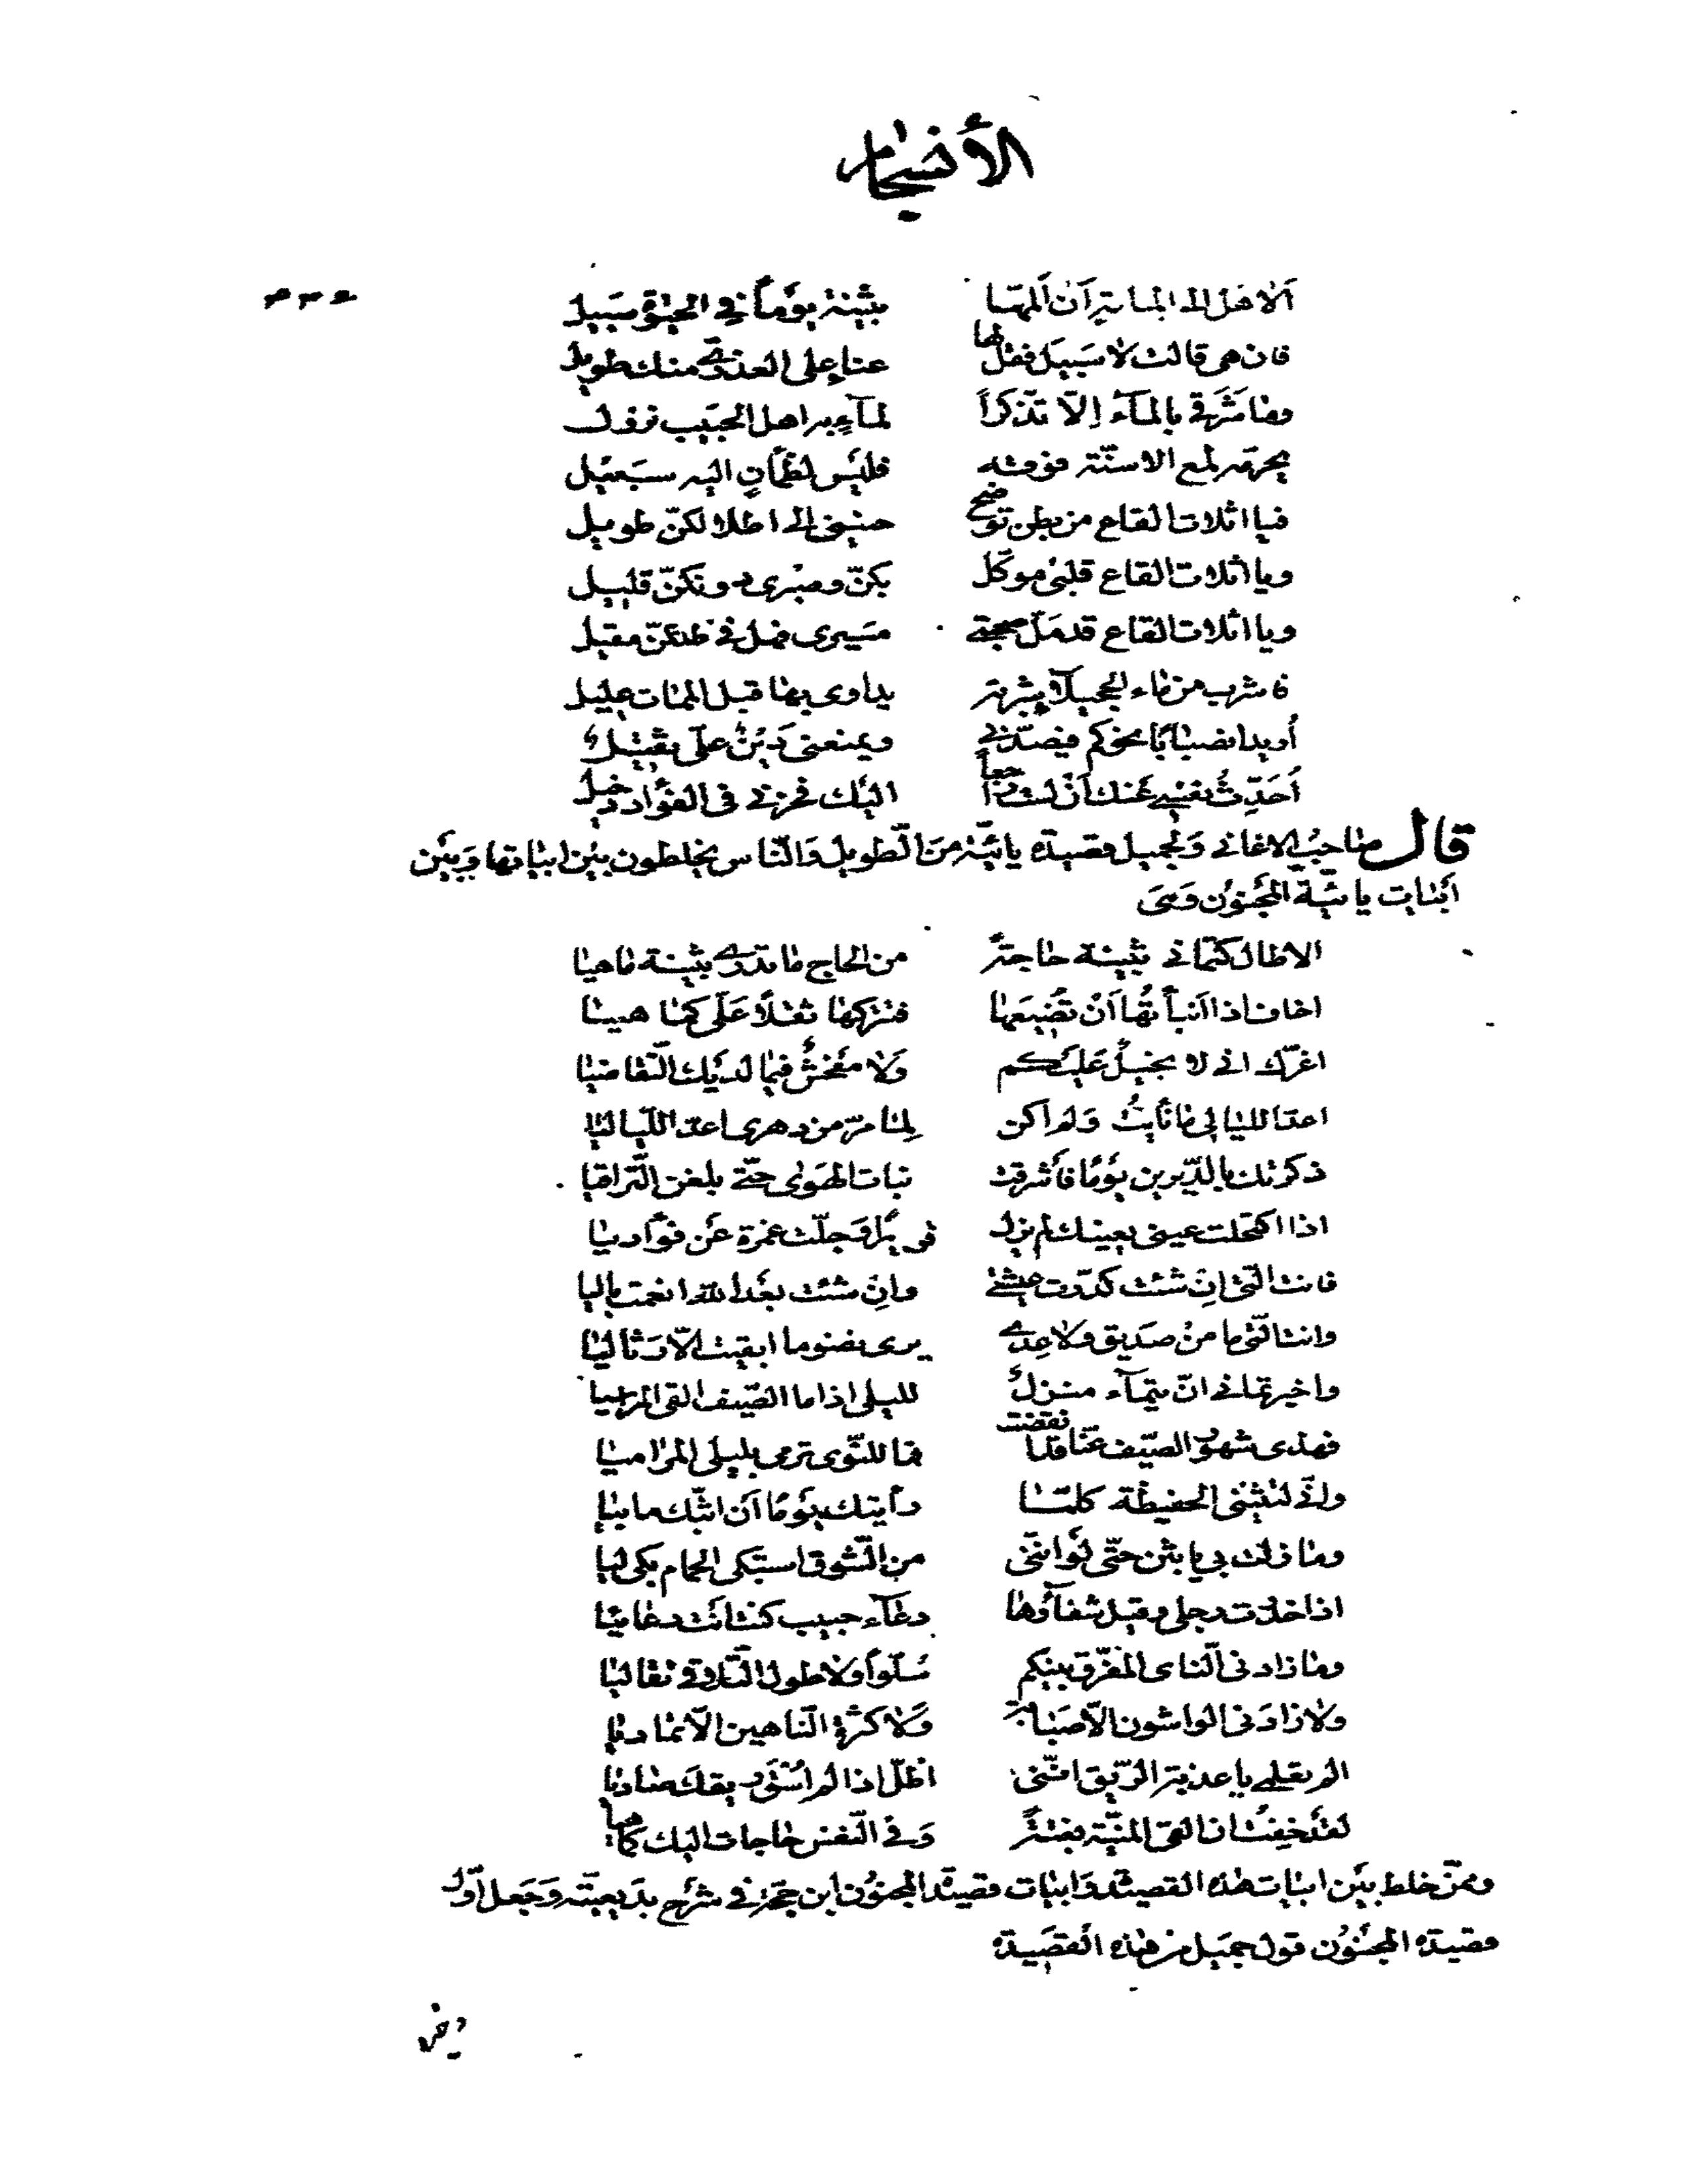 الأنسجام
ألا هل الى المامة أن ألمها بثينة يوماً في الحيوة سبيل
فان هي قالت لا سبيل فقل لها عناء على العذري منك طويل
وما شرقي بالماء إلّا تذكراً لماء به اهل الحبيب نزول
يحرمه لمع الاسنّة فوقه فليس لظمآن اليه سبيل
فيا اثلات القاع من بطن توضح حنيني الى اطلالكنّ طويل
ويا اثلات القاع قلبي موكل بكنّ وصبري دونكنّ قليل
ويا اثلات القاع قد ملّ صحبتي مسيري فهل في ظلكنّ مقيل
فاشرب من ماء الحجيلاء شربة يداوى بها قبل الممات عليل
أريد انصبابا نحوكم فيصدني ويمنعني دين عليّ ثقيل
أحدّث نفسي عنك أن لست راجعاً اليك فحزني في الفؤاد دخيل
قال صاحب الاغاني ولجميل قصيدة يائيّة من الطويل والنّاس يخلطون بين ابياتها وبين
أبيات يائيّة المجنون وهي
الا طال كتماني بثينة حاجةً من الحاج ما تدري بثينة ماهيا
اخاف اذا أنبأتها أن تضيعها فتتركها ثقلاً عليّ كما هيا
اغرّك اني لا بخيل عليكم ولا مفحش فيما لديك التّقاضيا
اعد الليالي ما نأيت ولم اكن لما مرّ من دهري اعد اللّياليا
ذكرتك بالدّيرين يوماً فأشرقت نبات الهوى حتّى بلغن التّراقيا
اذا اكتحلت عيني بعينك لم يزل وجلّت غمرة عن فؤاديا
فانت الّتي ان شئت كدّرت عيشتي وان شئت بعد الله انعمت باليا
وانت الّتي ما من صديق ولا عدى يرى نضو ما ابقيت الّا رثى ليا
واخبرتماني انّ تيماء منزل لليلى اذا ما الصّيف القى المراسيا
فهذي شهور الصّيف عنّا قد انقضت فما للنّوى ترمي بليلى المراميا
وانّي لتثنيني الحفيظة كلّما رأيتك يوماً أن ابثّك ما بيا
وما زلت بي يا بثن حتّى لو انّني من الشوق استبكي الحمام بكى ليا
اذا خدرت رجلي وقيل شفاؤها دعاء حبيب كنت أنت دعائيا
وما زادني النّاي المفرّق بينكم سلوّاً ولا طول التّلاقي تقاليا
ولا زادني الواشون الّا صبابة ولا كثرة النّاهين الّا تماديا
الم تعلمي يا عذبة الرّيق انّني اظلّ اذا لم اسق ريقك صاديا
لقد خفت ان القى المنيّة بغتةً وفي النّفس حاجات اليك كما هيا
وممّن خلط بين ابيات هذه القصيدة وابيات قصيدة المجنون ابن حجّة في شرح بديعيته وجعل أوّل
قصيدة المجنون قول جميل من هذه القصيدة